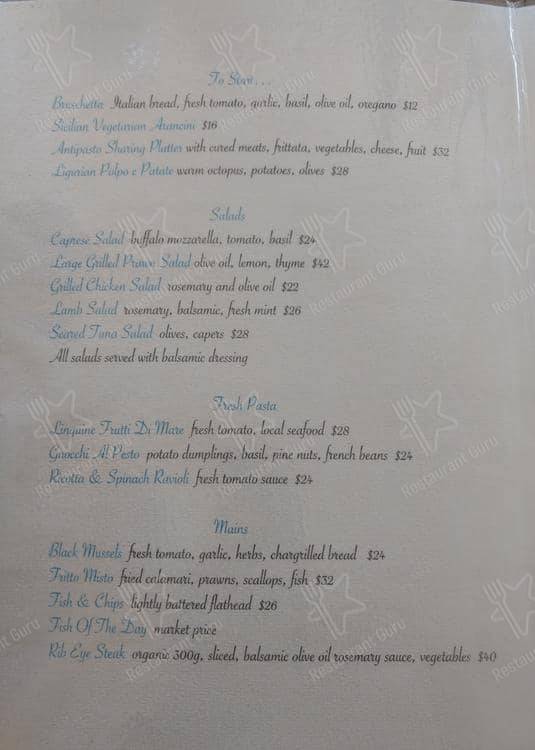 To Start...
Bruschetta Italian bread, fresh tomato, garlic, basil, olive oil, oregano $12
Sicilian Vegetarian Arancini $16
Antipasto Sharing Platter with cured meats, frittata, vegetables, cheese, fruit $32
Ligurian Polpo e Patate warm octopus, potatoes, olives $28
Salads
Caprese Salad buffalo mozzarella, tomato, basil $24
Large Grilled Prawn Salad olive oil, lemon, thyme $42
Grilled Chicken Salad rosemary and olive oil $22
Lamb Salad rosemary, balsamic, fresh mint $26
Seared Tuna Salad olives, capers $28
All salads served with balsamic dressing
Fresh Pasta
Linguine Frutti Di Mare fresh tomato, local seafood $28
Gnocchi Al Pesto potato dumplings, basil, pine nuts, french beans $24
Ricotta & Spinach Ravioli fresh tomato sauce $24
Mains
Black Mussels fresh tomato, garlic, herbs, chargrilled bread $24
Fritto Misto fried calamari, prawns, scallops, fish $32
Fish & Chips lightly battered flathead $26
Fish Of The Day market price
Rib Eye Steak organic 300g, sliced, balsamic olive oil rosemary sauce, vegetables $40
Restaurant Guru